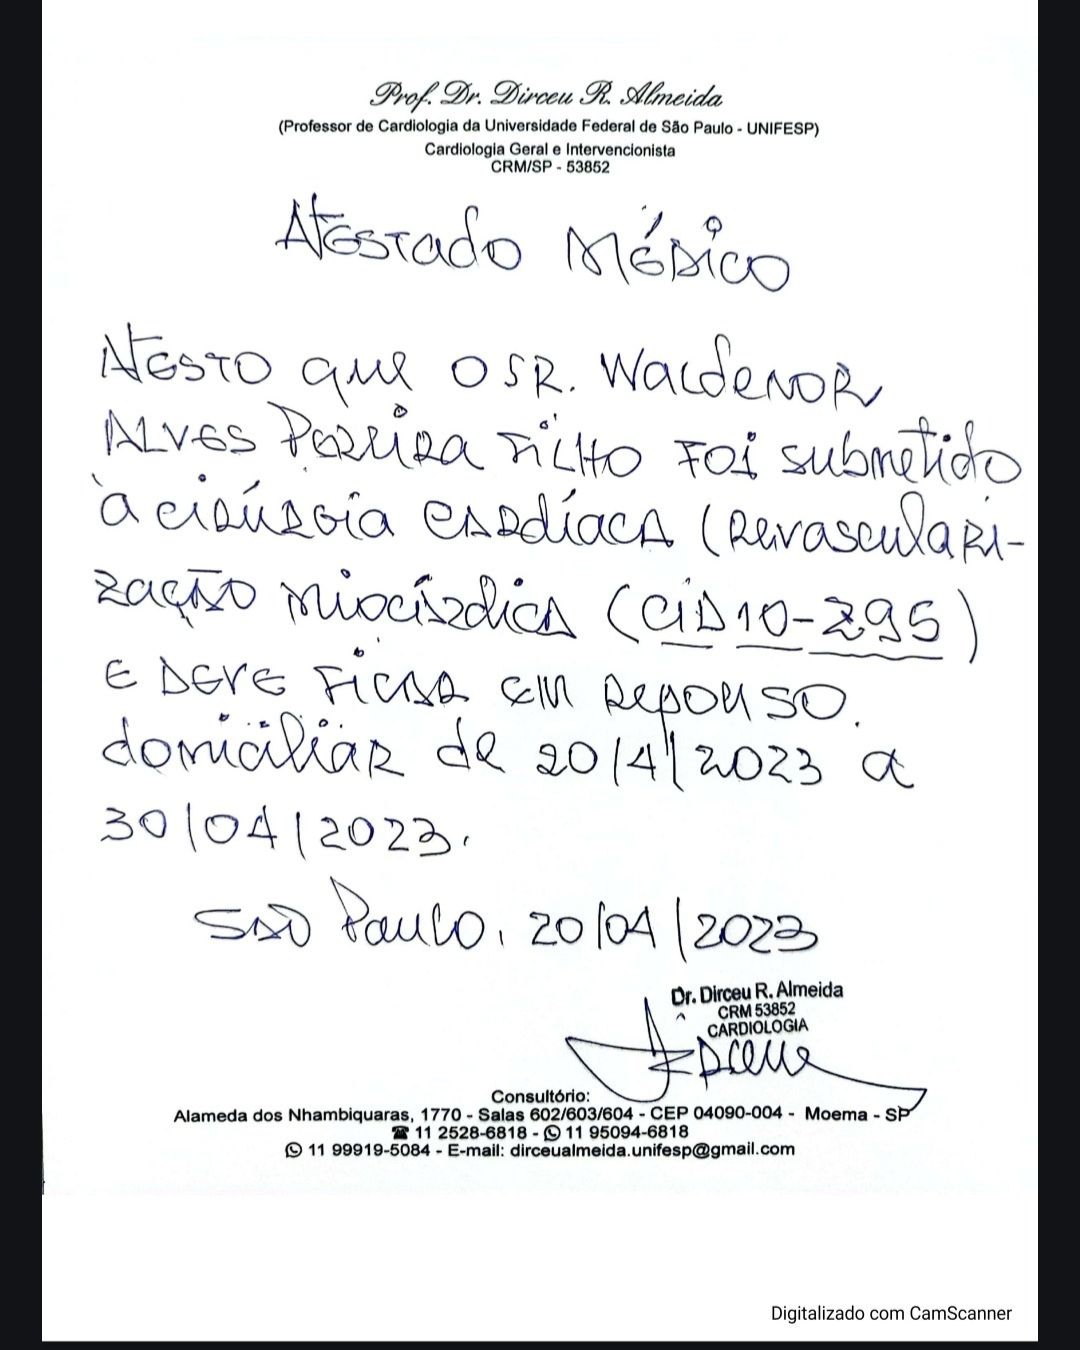 Prof. Dr. Dirceu R. Almeida
(Professor de Cardiologia da Universidade Federal de São Paulo - UNIFESP)
Cardiologia Geral e Intervencionista
CRM/SP - 53852
Atestado Médico
Atesto que o SR. Waldenor
Alves Pereira Filho foi submetido
à cirúrgia cardíaca (Revasculari-
zação miocárdica (CID 10-Z95)
e deve ficar em repouso
domiciliar de 20/4/2023 a
30/04/2023.
São Paulo, 20/04/2023
Dr. Dirceu R. Almeida
CRM 53852
CARDIOLOGIA
Dirceu
Consultório:
Alameda dos Nhambiquaras, 1770 - Salas 602/603/604 - CEP 04090-004 - Moema - SP
11 2528-6818 - 11 95094-6818
11 99919-5084 - E-mail: dirceualmeida.unifesp@gmail.com
Digitalizado com CamScanner